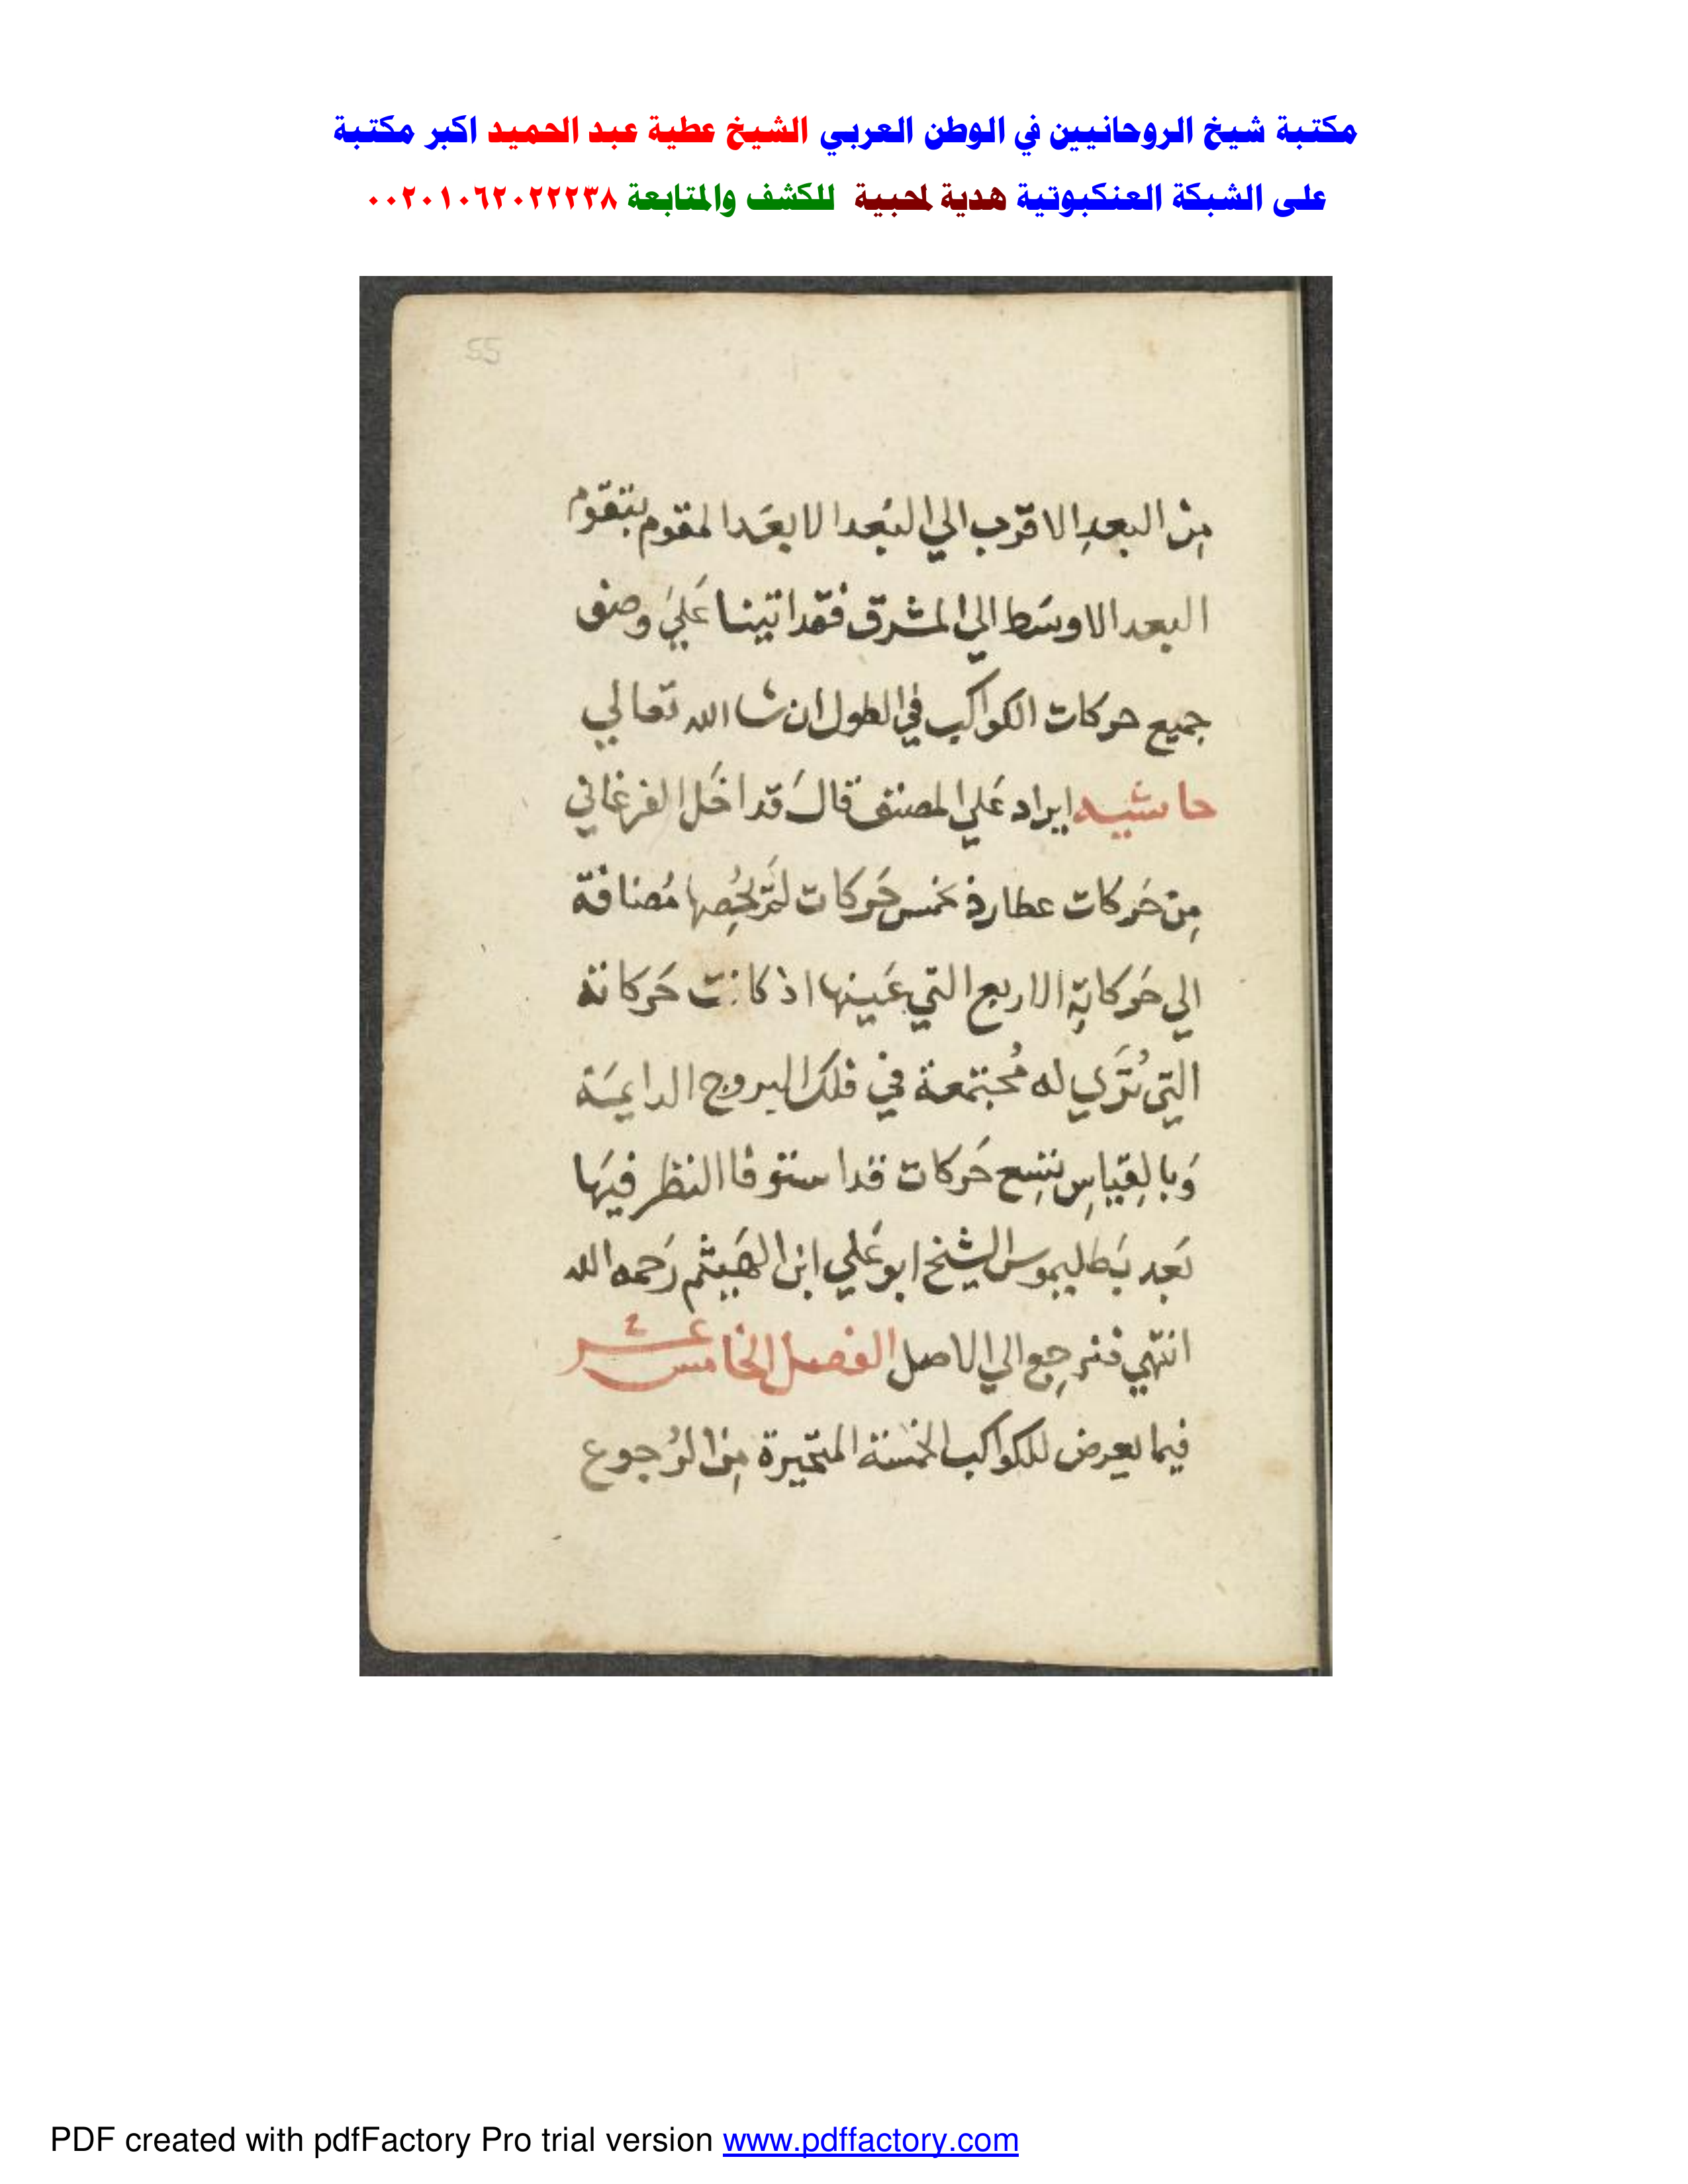 مكتبة شيخ الروحانيين في الوطن العربي الشيخ عطية عبد الحميد اكبر مكتبة
على الشبكة العنكبوتية هدية لمحبية للكشف والمتابعة ٠٠٢٠١٠٦٢٠٢٢٢٣٨
55
مِن البعدِ الاقرب الي البُعد الابعَد المقوم بتقوم
البعد الاوسَط الي المشرق فقد اتينا عَليَ وصف
جميع حركات الكواكب في الطول ان شا الله تعالي
حاشيه ايراد عَلي المصنف قالَ قد اخَل الفرغاني
مِن حَركات عطارد بخمس حَركات مُضافة
الي حَركاتِه الاربع التي عَينها اذ كانت حَركاته
التي تُري له مُجتمعة في فلك البروج الدايمَة
وَبالقِياسِ بتسِع حَركات قد استوفا النظر فيهَا
بَعد بَطليموس الشيخ ابو عَلي ابن الهَيثم رَحمه الله
انتهي فنرجِع الي الاصل الفصل الخامس عشر
فيما يعرض للكواكب الخمسة المتحيرة مِن الرُجوع
PDF created with pdfFactory Pro trial version www.pdffactory.com